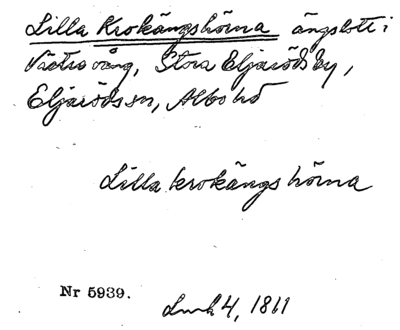 Lilla Krokängshörna ängslott i
Västra vång, Stora Eljaröds by,
Eljaröds sn, Albo hd
Lilla krokängs hörna
Nr 5939.
Lmk 4, 1811